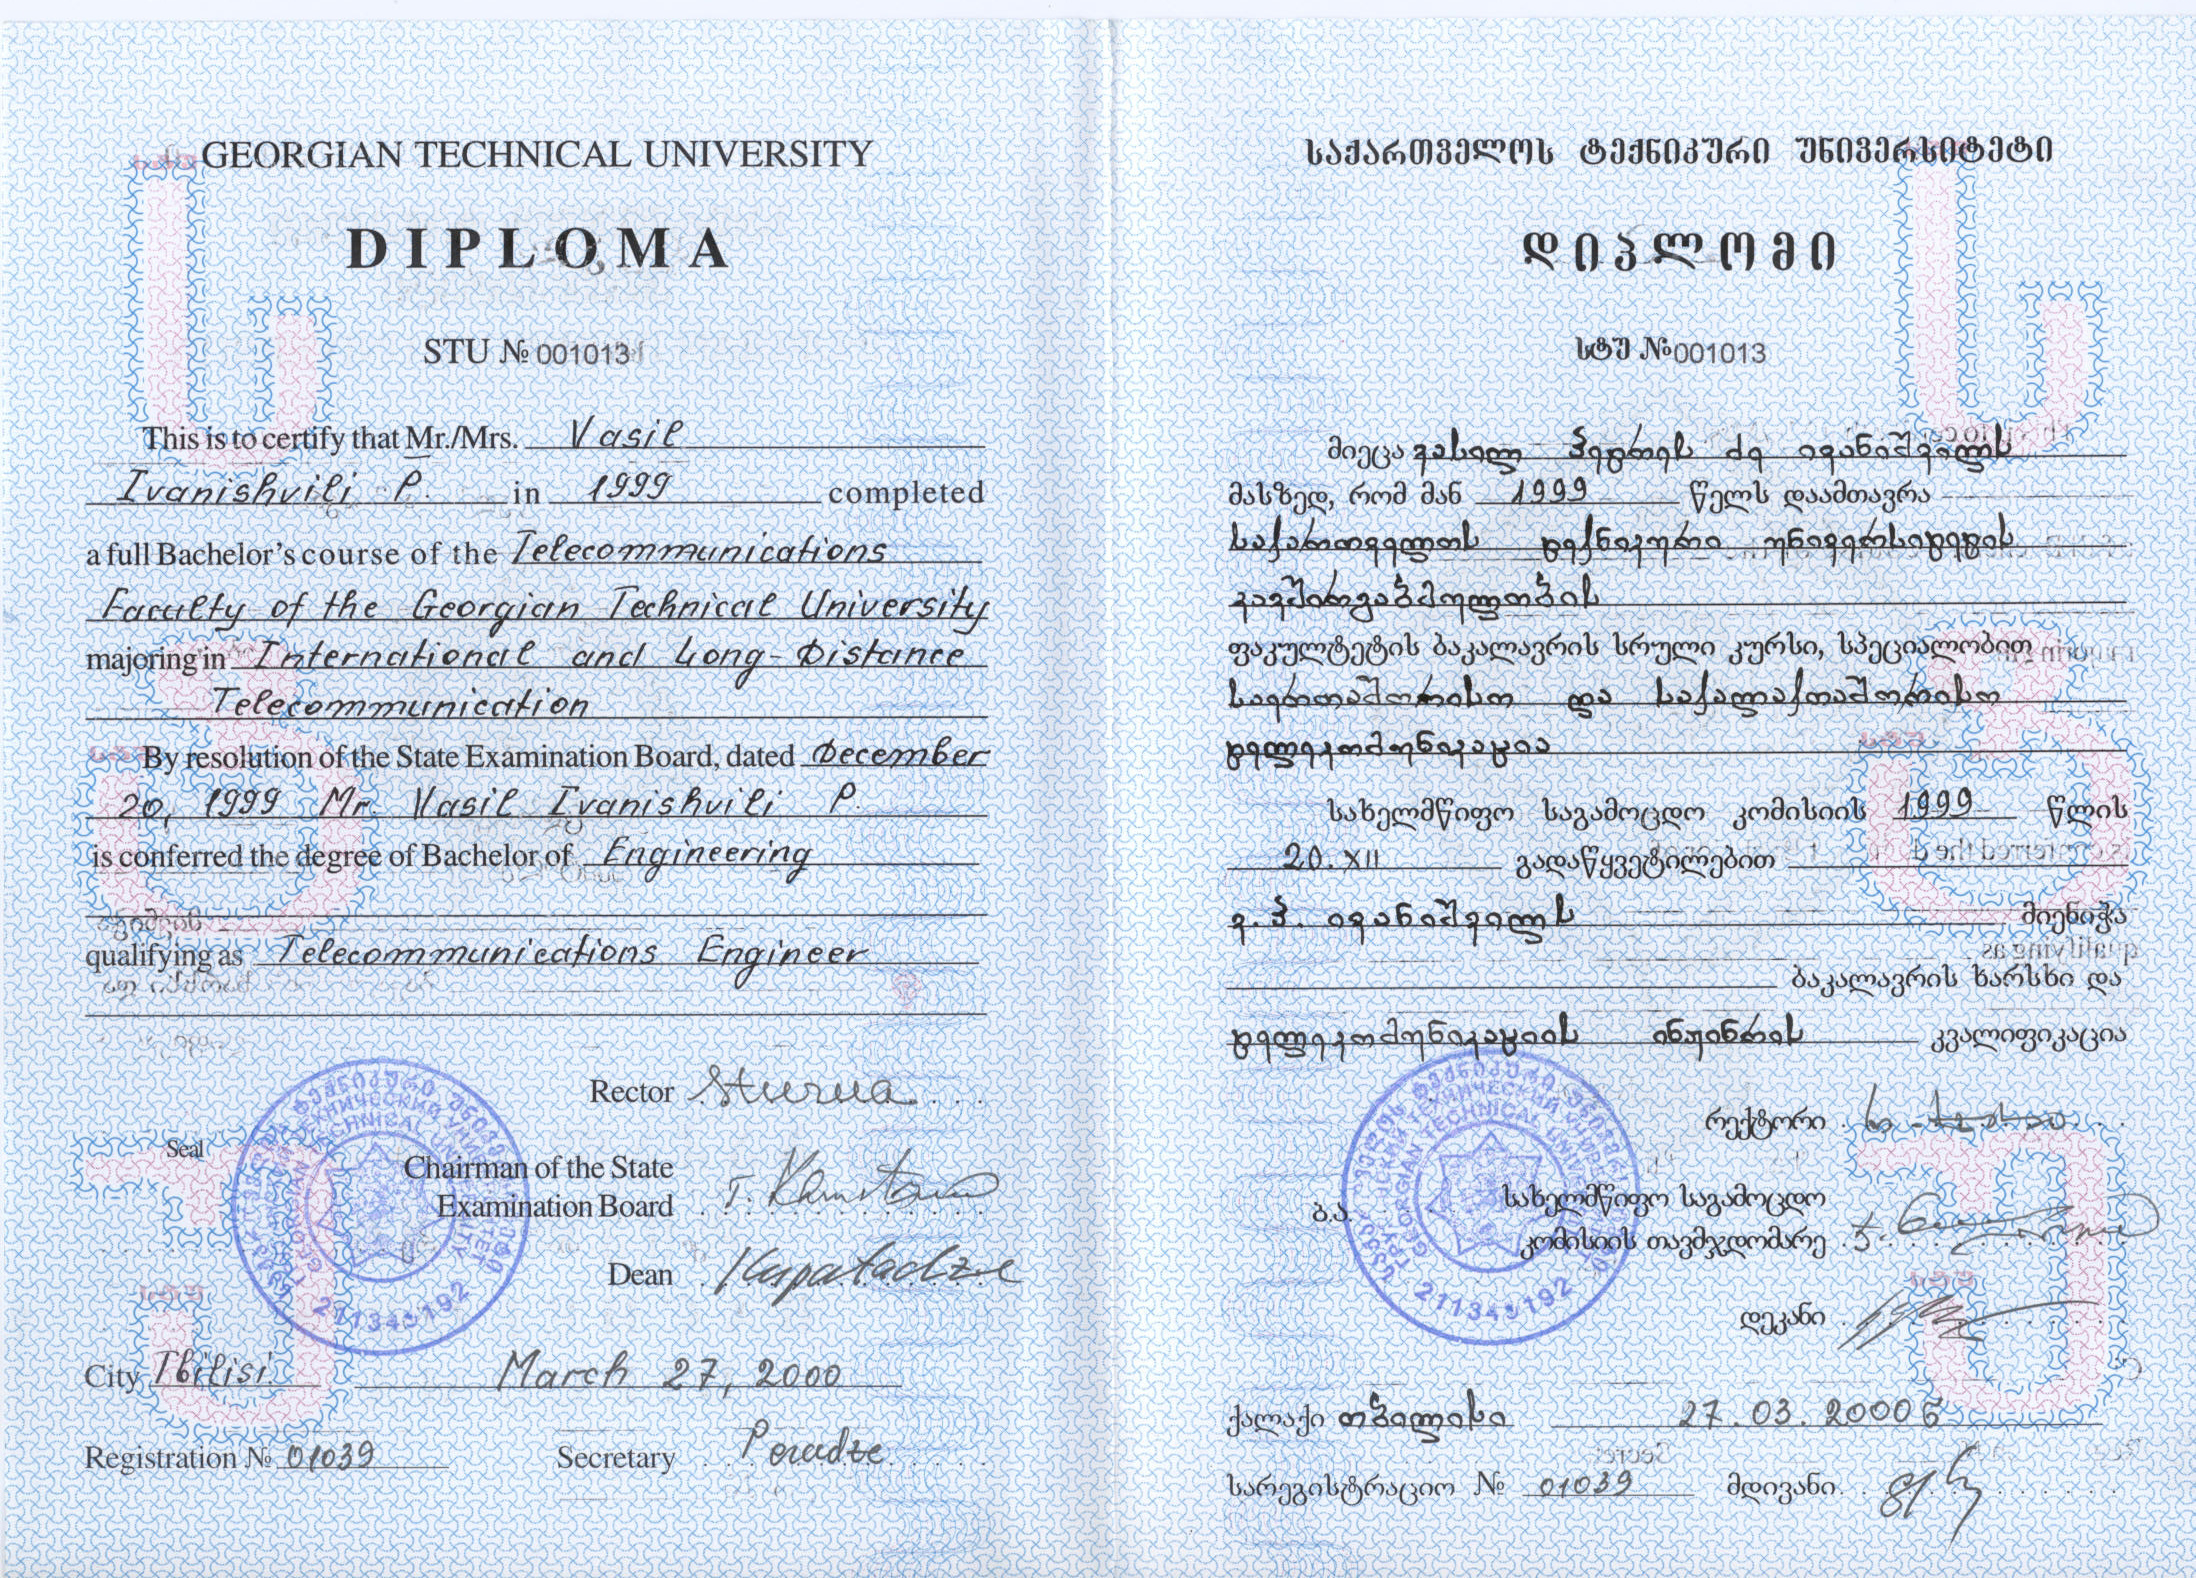 GEORGIAN TECHNICAL UNIVERSITY
DIPLOMA
STU № 001013
This is to certify that Mr./Mrs. Vasil
Ivanishvili P. in 1999 completed
a full Bachelor's course of the Telecommunications
Faculty of the Georgian Technical University
majoring in International and Long-Distance
Telecommunication
By resolution of the State Examination Board, dated December
20, 1999 Mr. Vasil Ivanishvili P.
is conferred the degree of Bachelor of Engineering
qualifying as Telecommunications Engineer
Rector Sturua
Seal
Chairman of the State
Examination Board
Dean Kupatadze
City Tbilisi March 27, 2000
Registration № 01039 Secretary Peradze
211345192
საქართველოს ტექნიკური უნივერსიტეტი
დიპლომი
სტუ №001013
მიეცა ვასილ პეტრეს ძე ივანიშვილს
მასზედ, რომ მან 1999 წელს დაამთავრა
საქართველოს ტექნიკური უნივერსიტეტის
კავშირგაბმულობის
ფაკულტეტის ბაკალავრის სრული კურსი, სპეციალობით
საერთაშორისო და საქალაქთაშორისო
ტელეკომუნიკაცია
სახელმწიფო საგამოცდო კომისიის 1999 წლის
20.XII გადაწყვეტილებით
ვ.პ. ივანიშვილს მიენიჭა
ბაკალავრის ხარსხი და
ტელეკომუნიკაციის ინჟინრის კვალიფიკაცია
რექტორი
ბ.ა. სახელმწიფო საგამოცდო
კომისიის თავმჯდომარე
დეკანი
ქალაქი თბილისი 27.03.2000წ
სარეგისტრაციო № 01039 მდივანი
211345192